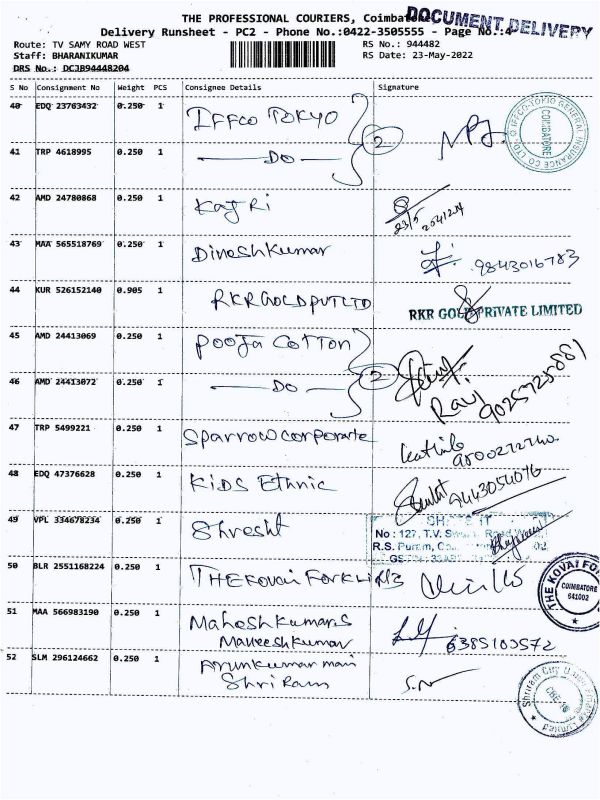 THE PROFESSIONAL COURIERS, Coimbatore
DOCUMENT DELIVERY
Delivery Runsheet - PC2 - Phone No.:0422-3505555 - Page No.:4
Route: TV SAMY ROAD WEST
RS No.: 944482
Staff: BHARANIKUMAR
RS Date: 23-May-2022
DRS No.: DCJB94448204
S No Consignment No Weight PCS Consignee Details Signature
40 EDQ 23763432 0.250 1 IFFCO TOKYO
IFFCO-TOKIO GENERAL INSURANCE CO. LTD. COIMBATORE
2
41 TRP 4618995 0.250 1 DO
42 AMD 24780868 0.250 1 Kajri
23/5
43 MAA 565518769 0.250 1 Dineshkumar 9843016783
44 KUR 526152140 0.905 1 RKR GOLD PVT LTD
RKR GOLD PRIVATE LIMITED
45 AMD 24413069 0.250 1 Pooja Cotton
2
Ravi
9025725881
46 AMD 24413072 0.250 1 DO
47 TRP 5499221 0.250 1 Sparrow corporate
48 EDQ 47376628 0.250 1 KIDS Ethnic
9443054076
49 VPL 334678234 0.250 1 Shresht
No : 127, T.V. Road
R.S. Puram,
50 BLR 2551168224 0.250 1 THE KOVAI FORKLIFTS
THE KOVAI COIMBATORE 641002
51 MAA 566983190 0.250 1 Maheshkumar S
Maheeshkumar
6385100572
52 SLM 296124662 0.250 1 Arunkumar mari
Shri Ram
S.
Shriram City Limited